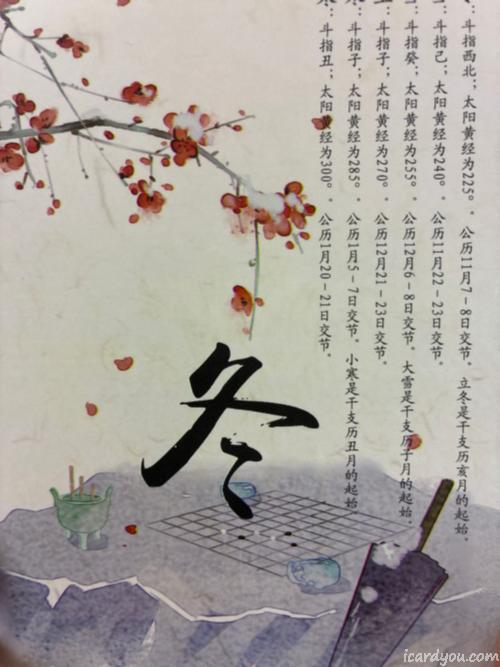 ：斗指西北；太阳黄经为225°。公历11月7-8日交节。立冬是干支历亥月的起始。
：斗指己；太阳黄经为240°。公历11月22-23日交节。
：斗指癸；太阳黄经为255°。公历12月6-8日交节。大雪是干支历子月的起始。
：斗指子；太阳黄经为270°。公历12月21-23日交节。
：斗指子；太阳黄经为285°。公历1月5-7日交节。小寒是干支历丑月的起始。
：斗指丑；太阳黄经为300°。公历1月20-21日交节。
冬
icardyou.com